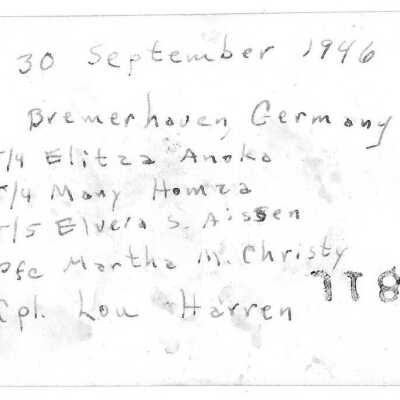 30 September 1946
Bremerhaven, Germany
T/4 Elitza Anoka
T/4 Mary Homza
T/5 Elvera S. Aissen
Pfc Martha M. Christy
Cpl. Lou Harren
118